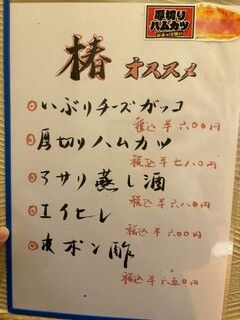 厚切り
ハムカツ
椿 オススメ
◎いぶりチーズガッコ
税込 ¥六〇〇円
◎厚切りハムカツ
税込 ¥七八〇円
◎アサリ蒸し酒
税込 ¥六八〇円
◎エイヒレ
税込 ¥六〇〇円
◎皮ポン酢
税込 ¥六五〇円